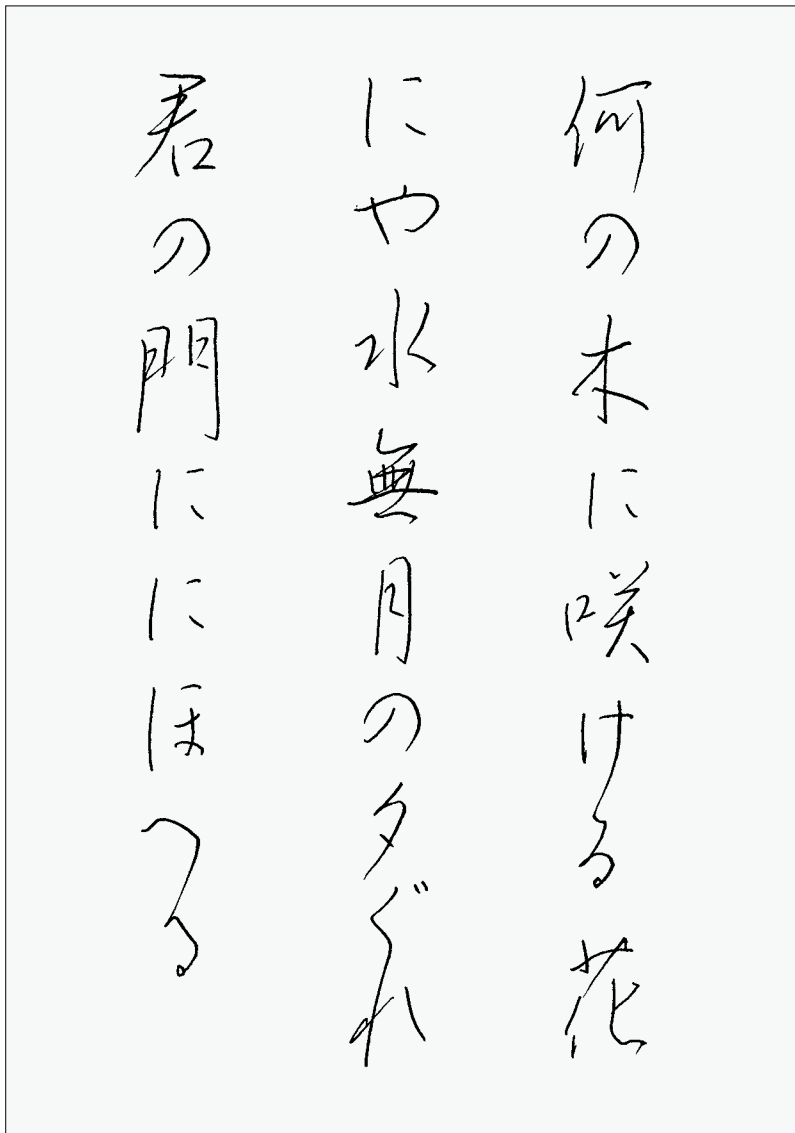 何の木に咲ける花
にや水無月の夕ぐれ
君の門ににほへる